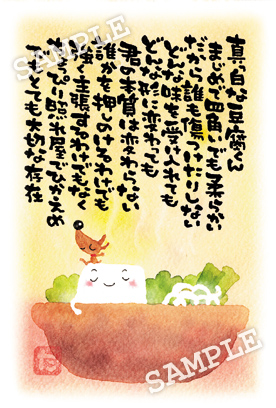 SAMPLE
真っ白な豆腐くん
まじめで四角いでも柔らかい
だから誰も傷つけたりしない
どんな味を受け入れても
どんな形に変わっても
君の本質は変わらない
誰かを押しのけるわけでも
強く主張するわけでもなく
ちょっぴり照れ屋でひかえめ
でもとても大切な存在
SAMPLE